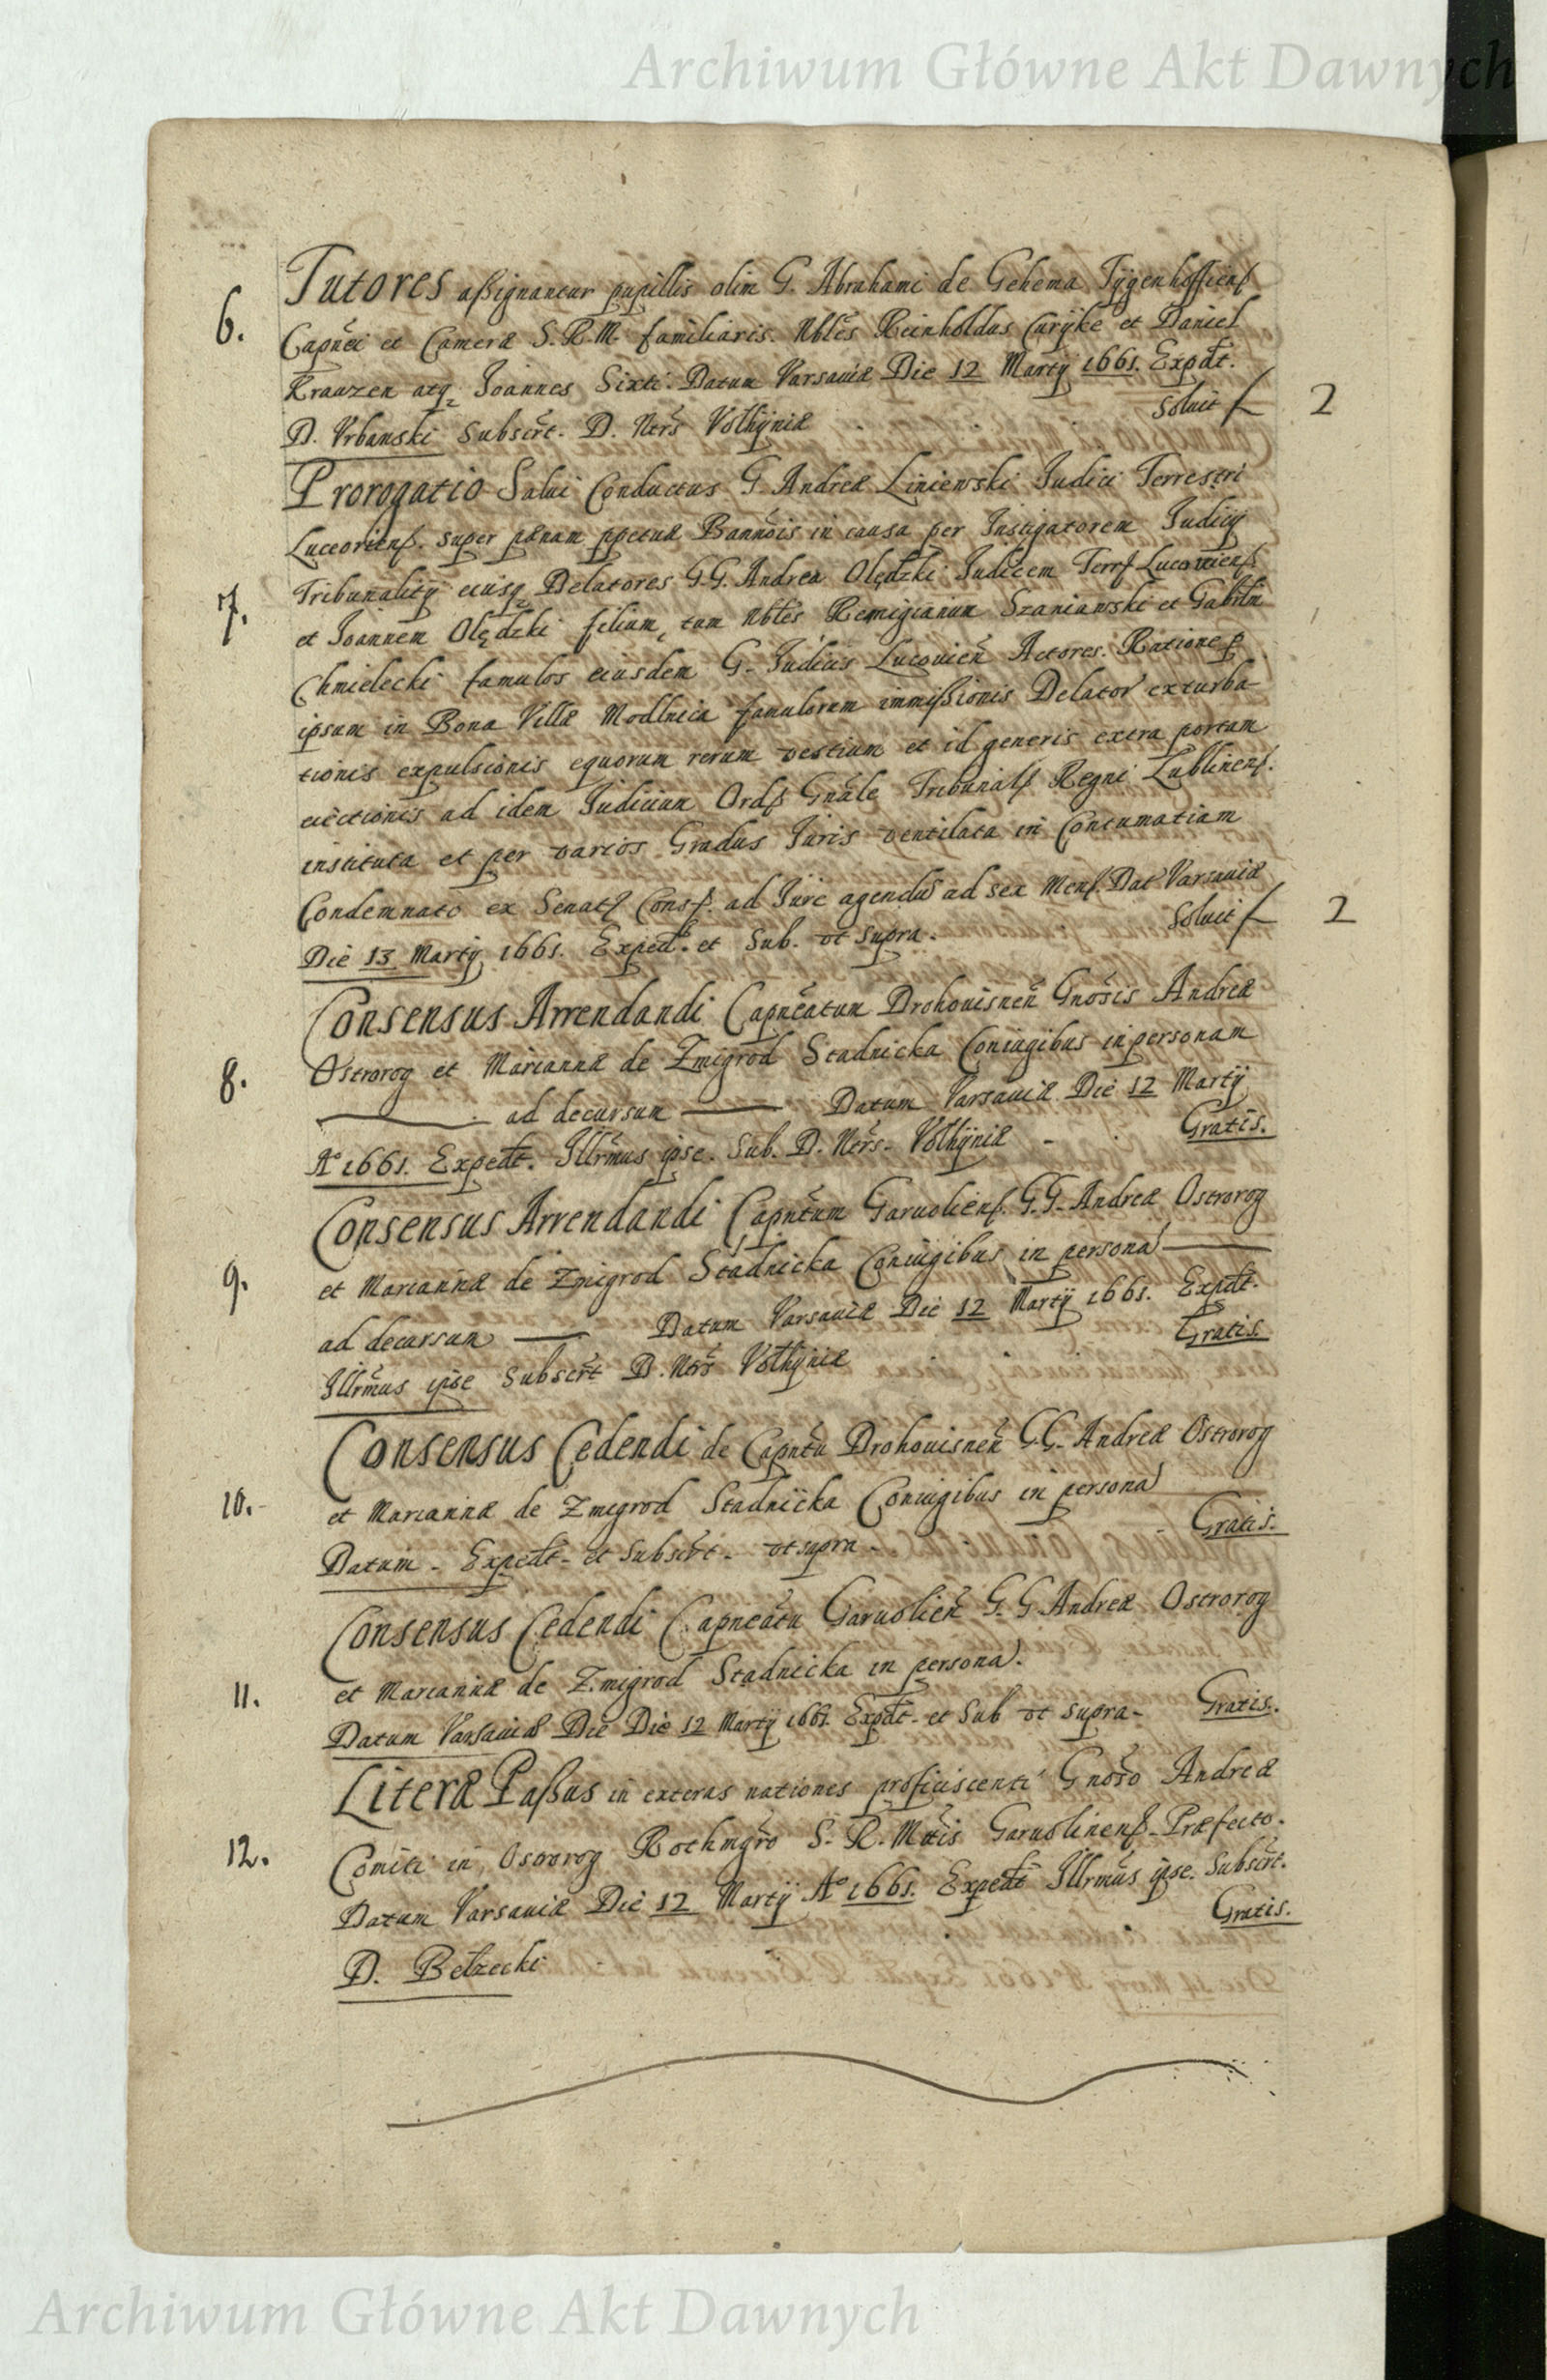 Archiwum Główne Akt Dawnych
6.
Tutores assignantur pupillis olim G. Abrahami de Gehema Tygenhoffiens
Capnei et Cameræ S. R. M. familiaris. Nbles Reinholdus Curyke et Daniel
Krauzen atq Joannes Sixti. Datum Varsaviæ Die 12 Martij 1661. Expdt.
D. Vrbanski Subscrt. D. Ners Volhyniæ Soluit f 2
7.
Prorogatio Salui Conductus G. Andreæ Liniewski Judici Terrestri
Luceoriens. super pænam ppetuæ Bannois in causa per Instigatorem Judicij
Tribunalitij eiusq Delatores G.G. Andrea Olędzki Judicem Terrs Lucoviens
et Joannem Olędzki filium, tum Nbles Remigianum Szaniawski et Gabrlm
Chmielecki famulos eiusdem G. Judicis Lucouien Actores. Ratione p
ipsum in Bona Villæ Modlnica famulorum immissionis Delator exturba-
tionis expulsionis equorum rerum vestium et id generis extra portam
eiectionis ad idem Judicium Ords Gnale Tribunals Regni Lublinens.
instituta et per varios Gradus Juris ventilata in Contumatiam
Condemnato ex Senats Cons. ad Jure agendu ad sex Mens. Dat Varsauiæ
Die 13 Martij 1661. Exped. et Sub. vt supra. Soluit f 2
8.
Consensus Arrendandi Capneatum Drohouisnen Gnosis Andreæ
Ostrorog et Mariannæ de Zmigrod Stadnicka Coniugibus in personam
ad decursum Datum Varsauiæ Die 12 Martij
Ao 1661. Expedt. Illrmus ipse. Sub. D. Ners. Volhyniæ Gratis.
9.
Consensus Arrendandi Capntum Garuoliens. G.G. Andreæ Ostrorog
et Mariannæ de Zmigrod Stadnicka Coniugibus in persona
ad decursum Datum Varsauiæ Die 12 Martij 1661. Expdt.
Illrmus ipse Subscrt D. Ners Volhyniæ Gratis.
10.
Consensus Cedendi de Capntu Drohouisnen G.G. Andreæ Ostrorog
et Mariannæ de Zmigrod Stadnicka Coniugibus in persona
Datum. Expedt. et Subscrt. vt supra. Gratis.
11.
Consensus Cedendi Capneatu Garuolien G. G. Andreæ Ostrorog
et Mariannæ de Zmigrod Stadnicka in persona.
Datum Varsauiæ Die Die 12 Martij 1661. Expdt. et Sub vt supra. Gratis.
12.
Literæ Passus in exteras nationes proficiscenti Gnoso Andreæ
Comiti in Ostrorog Rothmgro S. R. Mtis Garuolinens. Præfecto.
Datum Varsauiæ Die 12 Martij Ao 1661. Expedt Illrmus ipse. Subscrt.
D. Bełzecki Gratis.
Archiwum Główne Akt Dawnych